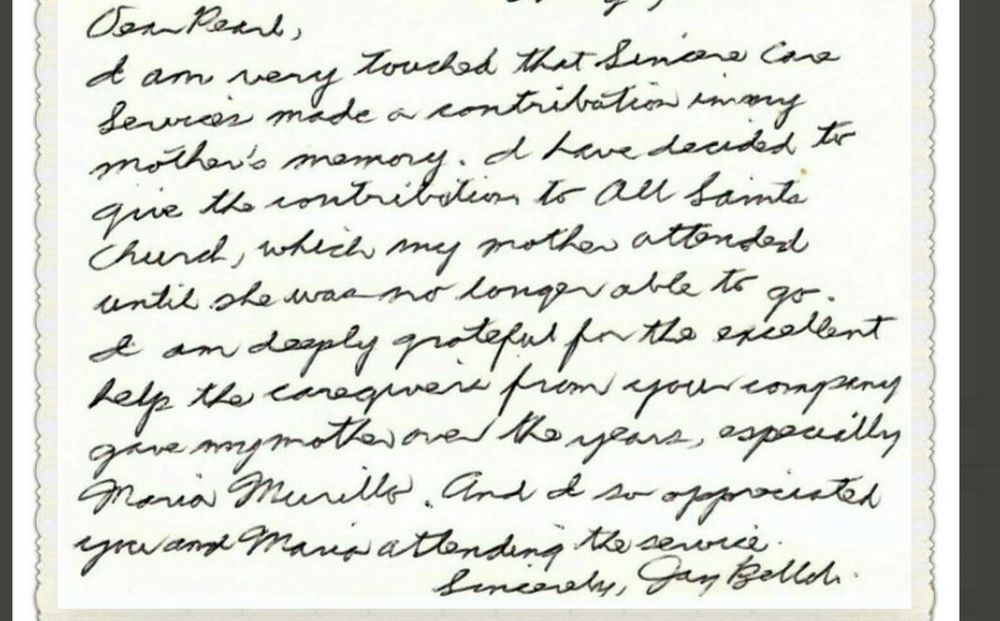 Dear Pearl,
I am very touched that Sincere Care
Services made a contribution in my
mother's memory. I have decided to
give the contribution to All Saints
Church, which my mother attended
until she was no longer able to go.
I am deeply grateful for the excellent
help the caregivers from your company
gave my mother over the years, especially
Maria Murillo. And I so appreciated
you and Maria attending the service.
Sincerely, Jay